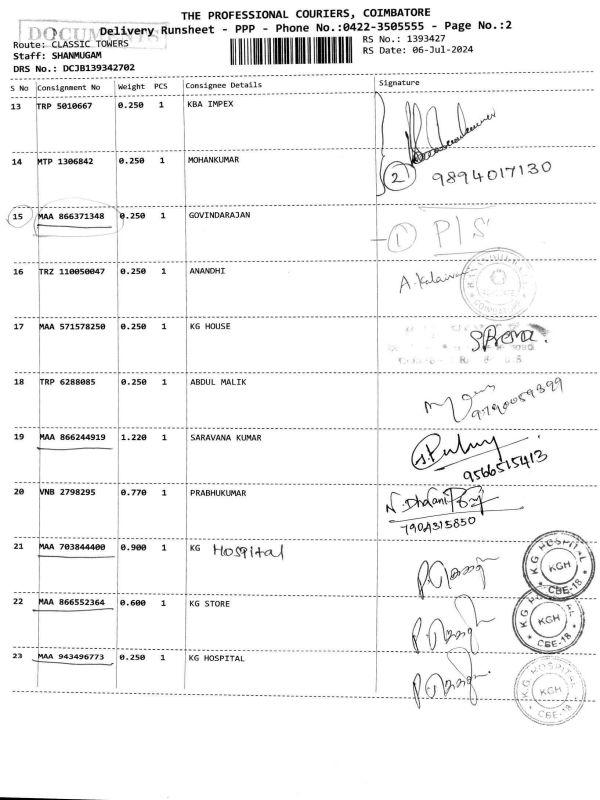 THE PROFESSIONAL COURIERS, COIMBATORE
DOCUMENTS
Delivery Runsheet - PPP - Phone No.:0422-3505555 - Page No.:2
Route: CLASSIC TOWERS
RS No.: 1393427
Staff: SHANMUGAM
RS Date: 06-Jul-2024
DRS No.: DCJB139342702
S No Consignment No Weight PCS Consignee Details Signature
13 TRP 5010667 0.250 1 KBA IMPEX
14 MTP 1306842 0.250 1 MOHANKUMAR
2 9894017130
15 MAA 866371348 0.250 1 GOVINDARAJAN
1 P/S
16 TRZ 110050047 0.250 1 ANANDHI
COIMBATORE
17 MAA 571578250 0.250 1 KG HOUSE
18 TRP 6288085 0.250 1 ABDUL MALIK
9790059399
19 MAA 866244919 1.220 1 SARAVANA KUMAR
9566515413
20 VNB 2798295 0.770 1 PRABHUKUMAR
7904315850
21 MAA 703844400 0.900 1 KG Hospital
KG HOSPITAL KGH CBE-18
22 MAA 866552364 0.600 1 KG STORE
KG HOSPITAL KGH CBE-18
23 MAA 943496773 0.250 1 KG HOSPITAL
KG HOSPITAL KGH CBE-18